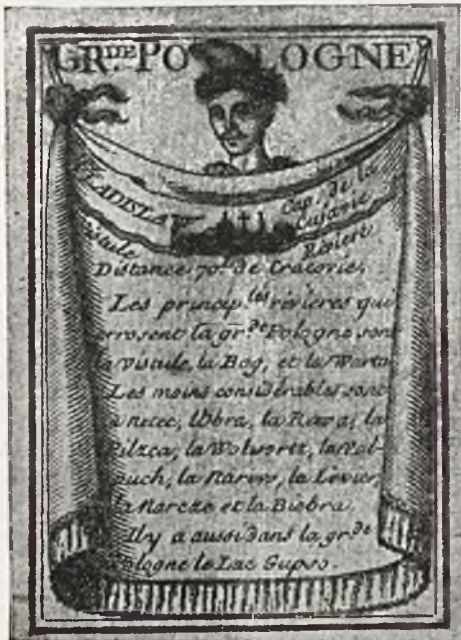 GR.DE POLOGNE
ULADISLAW
Cap. de la
Cujavie
Vistule
Riviere
Distance 70.l de Cracovie.
Les princip.les rivieres qui
arrosent la gr.de Pologne sont
la Vistule, la Bog, et la Warta
Les moins considérables sont
la netec, l'Obra, la Rawa, la
Pilzca, la Wolwortz, la
la Narew, la
la Narcze et la Biebra.
Il y a aussi dans la gr.de
Pologne le Lac Gupso.